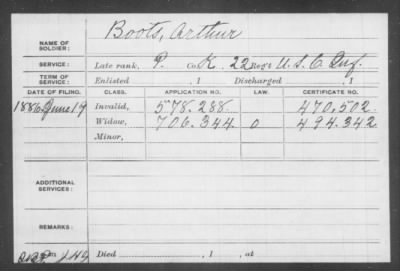 NAME OF SOLDIER: Boots, Arthur
SERVICE: Late rank, P. Co. K, 22 Reg't U.S.C. Inf.
TERM OF SERVICE: Enlisted , 1 Discharged , 1
DATE OF FILING. CLASS. APPLICATION NO. LAW. CERTIFICATE NO.
1886 June 19 Invalid, 578.288 470,502
Widow, 706.344 0 494.342
Minor,
ADDITIONAL SERVICES:
REMARKS:
Died , 1 , at